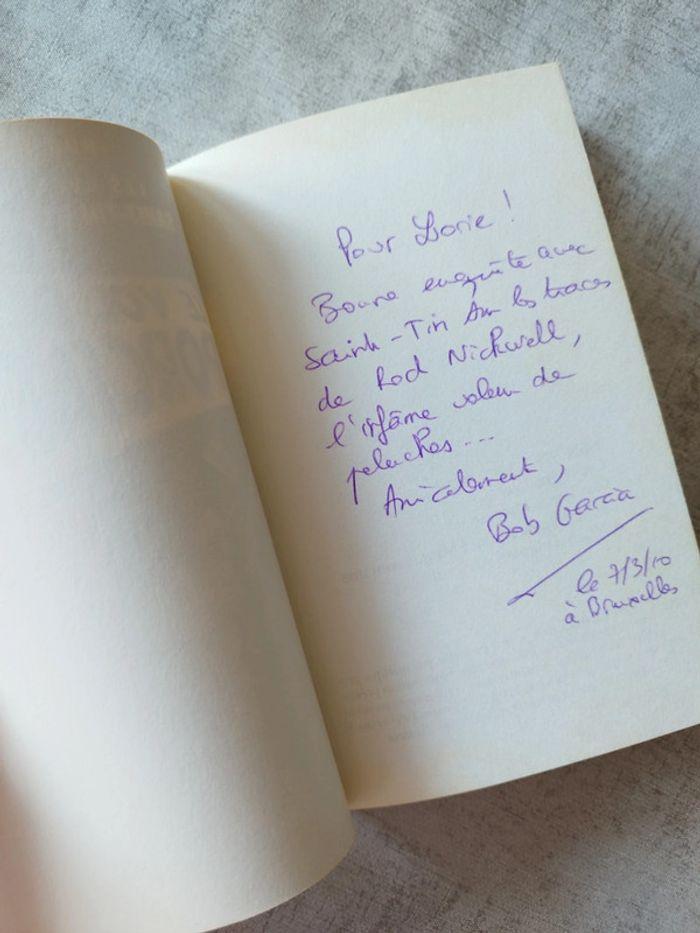 Pour Dorie !
Bonne enquête avec
Saint-Tin sur les traces
de Rod Nickwell,
l'infâme voleur de
peluches...
Amicalement,
Bob Garcia
le 7/3/10
à Bruxelles